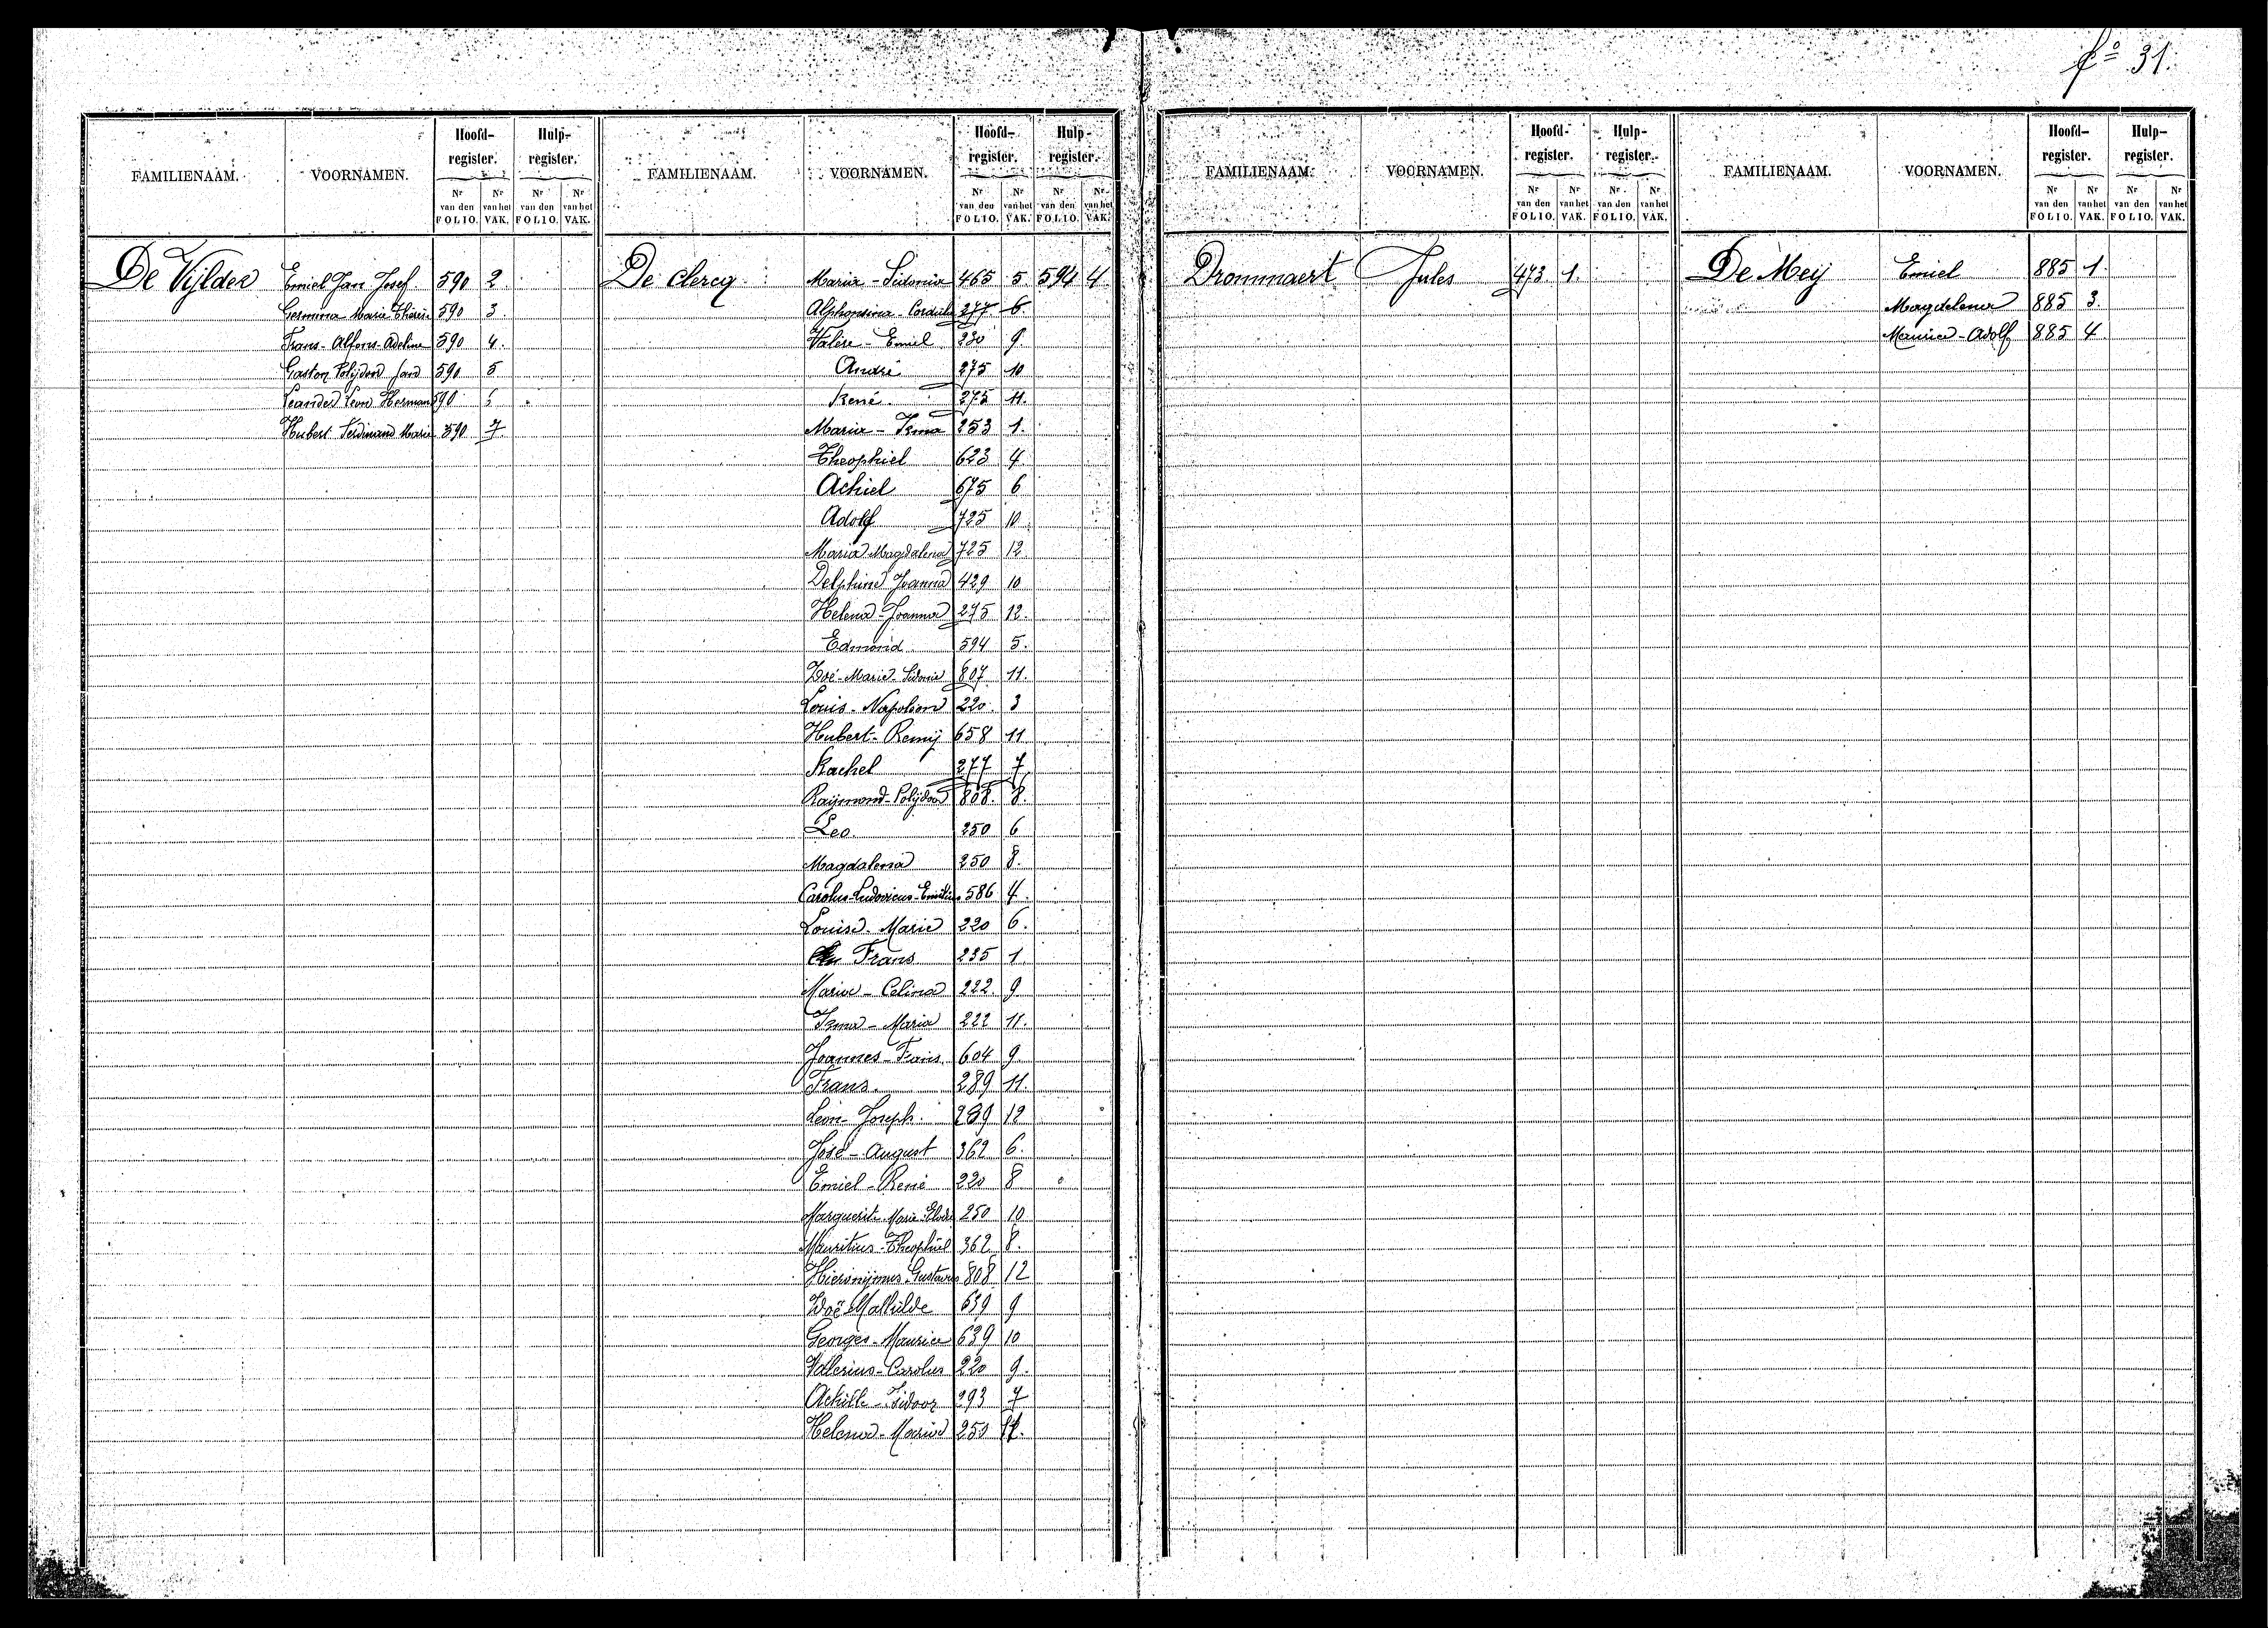 fº 31.
FAMILIENAAM. VOORNAMEN. Hoofd-register. Hulp-register.
Nr van den FOLIO. Nr van het VAK. Nr van den FOLIO. Nr van het VAK.
De Vijlder Emiel Jan Josef 590 2.
Germina Marie Thérèse 590 3.
Frans-Alfons-Adeline 590 4.
Gaston Polijdor 590 5
Leander Leon Herman 590
Hubert Ferdinand Marie 590 7
FAMILIENAAM. VOORNAMEN. Hoofd-register. Hulp-register.
Nr van den FOLIO. Nr van het VAK. Nr van den FOLIO. Nr van het VAK.
De Clercq Maria-Sidonia 465 5. 594 4.
Alphonsina-Cordula 277 6.
Valère-Emiel 230 9.
André 275 10
René 275 11.
Maria-Irma 253 1.
Theophiel 623 4.
Achiel 675 6
Adolf 725 10
Maria Magdalena 725 12
Delphina Joanna 429 10
Helena-Joanna 275 12.
Edmond 594 5.
Zoé-Marie-Sidonie 807 11.
Louis-Napoleon 220. 3
Hubert-Remij 658 11
Rachel 277 7
Raijmond-Polijdoor 808. 8.
Leo 250 6
Magdalena 250 8.
Carolus-Ludovicus-Emilius 586 4.
Louisa-Maria 220 6.
Frans 235 1.
Maria-Celina 222. 9
Irma-Maria 222 11.
Joannes-Frans 604 9
Frans. 289 11.
Leon-Joseph 289 12
José-August 362 6.
Emiel-René 220 8
Marguerite Marie 250 10
Mauritius-Theophiel 362 8.
Hieronijmus Gustavus 808 12
Zoë Mathilde 639 9
Georges-Maurice 639 10
Valerius-Carolus 220 9.
Achille-Isidoor 293 7
Helena-Maria 250
FAMILIENAAM. VOORNAMEN. Hoofd-register. Hulp-register.
Nr van den FOLIO. Nr van het VAK. Nr van den FOLIO. Nr van het VAK.
Drommaert Jules 473 1.
FAMILIENAAM. VOORNAMEN. Hoofd-register. Hulp-register.
Nr van den FOLIO. Nr van het VAK. Nr van den FOLIO. Nr van het VAK.
De Meij Emiel 885 1.
Magdelena 885 3.
Maurice-Adolf 885 4.